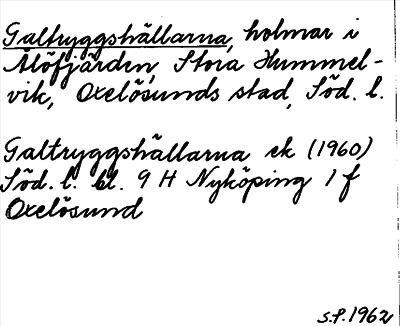 Galtryggshällarna, holmar i
Älöfjärden, Stora Hummel-
vik, Oxelösunds stad, Söd. l.
Galtryggshällarna ek (1960)
Söd. l. bl. 9 H Nyköping 1 f
Oxelösund
S.P. 1962